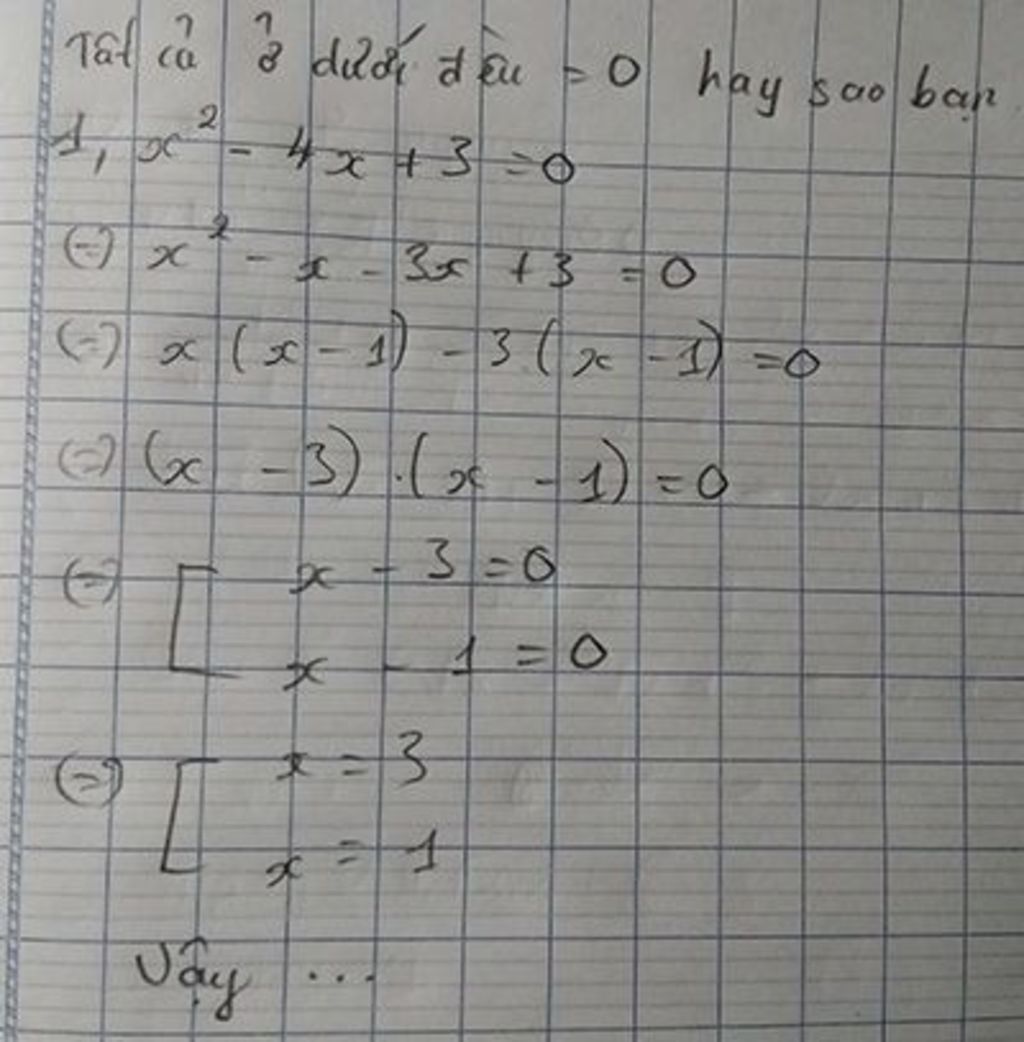 Tất cả ở dưới đều = 0 hay sao bạn
1, x² - 4x + 3 = 0
(=) x² - x - 3x + 3 = 0
(=) x (x - 1) - 3 (x - 1) = 0
(=) (x - 3) . (x - 1) = 0
(=) [ x - 3 = 0
x - 1 = 0
(=) [ x = 3
x = 1
Vậy ...